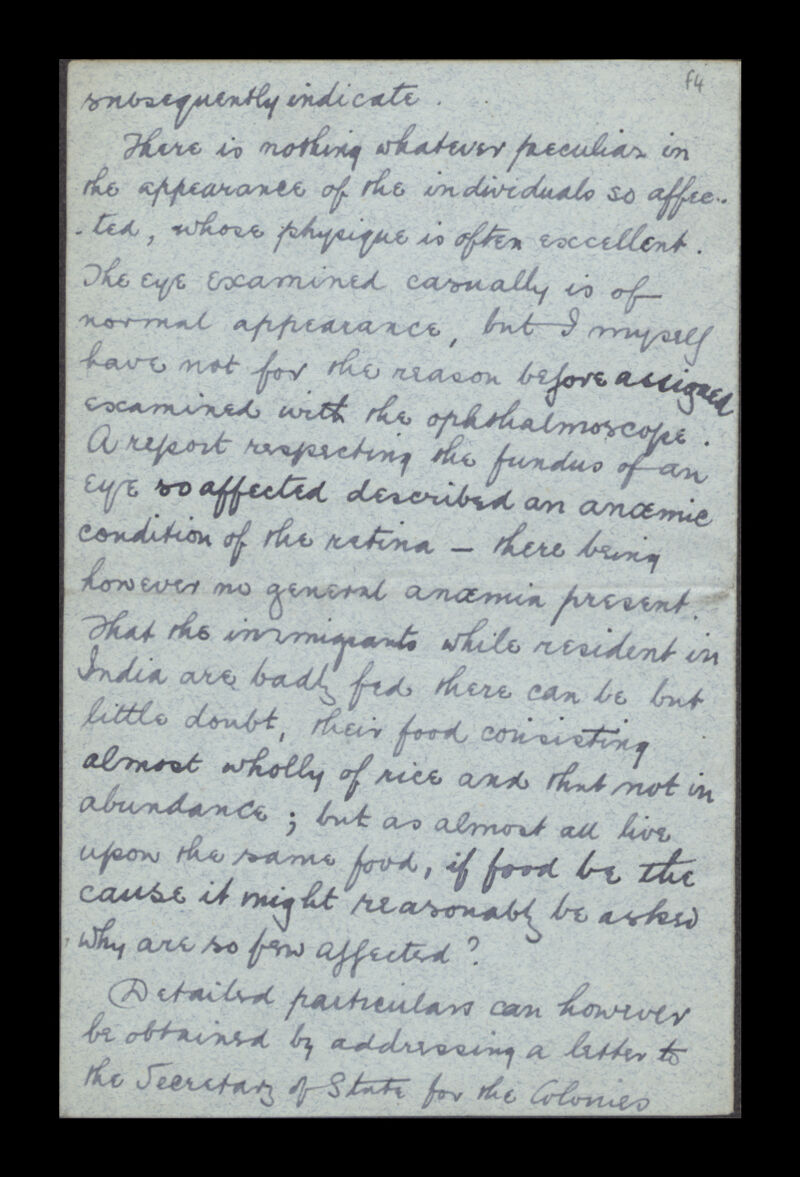 f4
subsequently indicate .
There is nothing whatever peculiar in
the appearance of the individuals so affec-
-ted, whose physique is often excellent .
The eye examined casually is of
normal appearance, but I myself
have not for the reason before assigned
examined with the ophthalmoscope .
A report respecting the fundus of an
eye so affected described an anæmic
condition of the retina — there being
however no general anæmia present.
That the immigrants while resident in
India are badly fed there can be but
little doubt, their food consisting
almost wholly of rice and that not in
abundance ; but as almost all live
upon the same food, if food be the
cause it might reasonably be asked
why are so few affected ?
Detailed particulars can however
be obtained by addressing a letter to
the Secretary of State for the Colonies